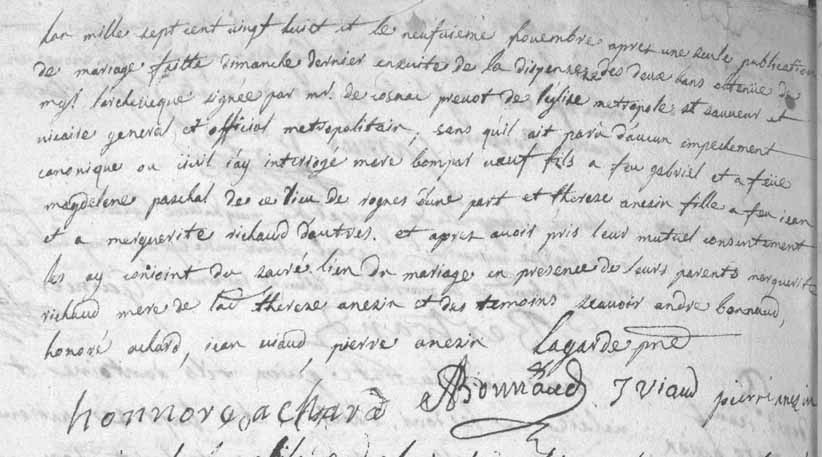 Lan mille sept cent vingt huict et le neufuieme novembre apres une seule publication
de mariage faitte dimanche dernier ensuite de la dispense des deux bans obtenue de
mgr. larcheveque signée par mr. de cosnac prevot de leglise metropole st sauveur et
vicaire general et official metropolitain, sans quil ait parû d'aucun empechement
canonique ou civil j'ay interrogé mere bompar veuf fils a feu gabriel et a feüe
magdelene paschal de ce lieu de rognes d'une part et therese anezin fille a feu jean
et a merguerite richaud d'autres. et apres avoir pris leur mutuel consentement
les ay conjoint du sacré lien du mariage en presence de leurs parents merguerite
richaud mere de lad therese anezin et des temoins scavoir andre bonnaud,
honoré achard, jean viaud, pierre anezin Lagarde pre
honnore achard ABonnaud J Viaud pierre anezin